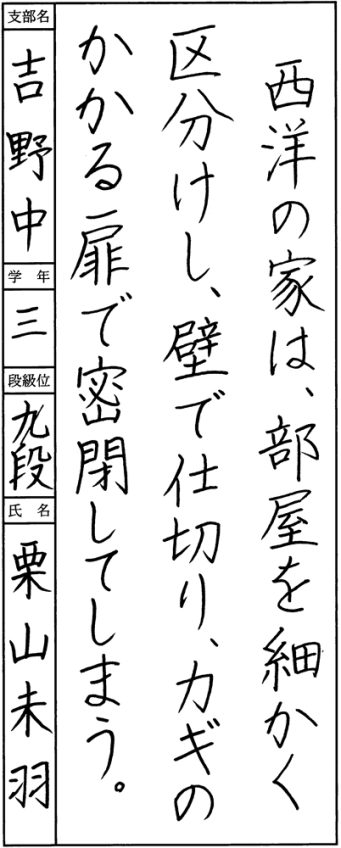 西洋の家は、部屋を細かく
区分けし、壁で仕切り、カギの
かかる扉で密閉してしまう。
支部名
吉野中
学年
三
段級位
九段
氏名
栗山未羽